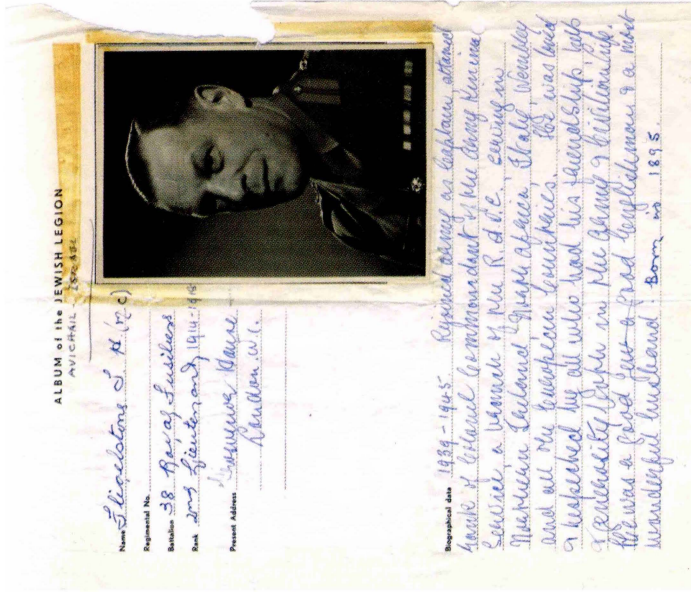 ALBUM of the JEWISH LEGION
AVICHAIL ISRAEL
Name Fligelstone T H (MC)
Regimental No.
Battalion 38 Royal Fusiliers
Rank 2nd Lieutenant 1914-1918
Present Address House
London. W.
Biographical data 1939-1945 Rejoined army as Captain
rank of Colonel Commandant of the Army Kinema
Service a branch of the R.A.O.C. serving in
Northern Ireland North Africa Italy
and all the European Countries. He was
& respected by all who had his friendship
generosity both in the army &
He was a good Jew a good Englishman & a most
wonderful husband. Born in 1895